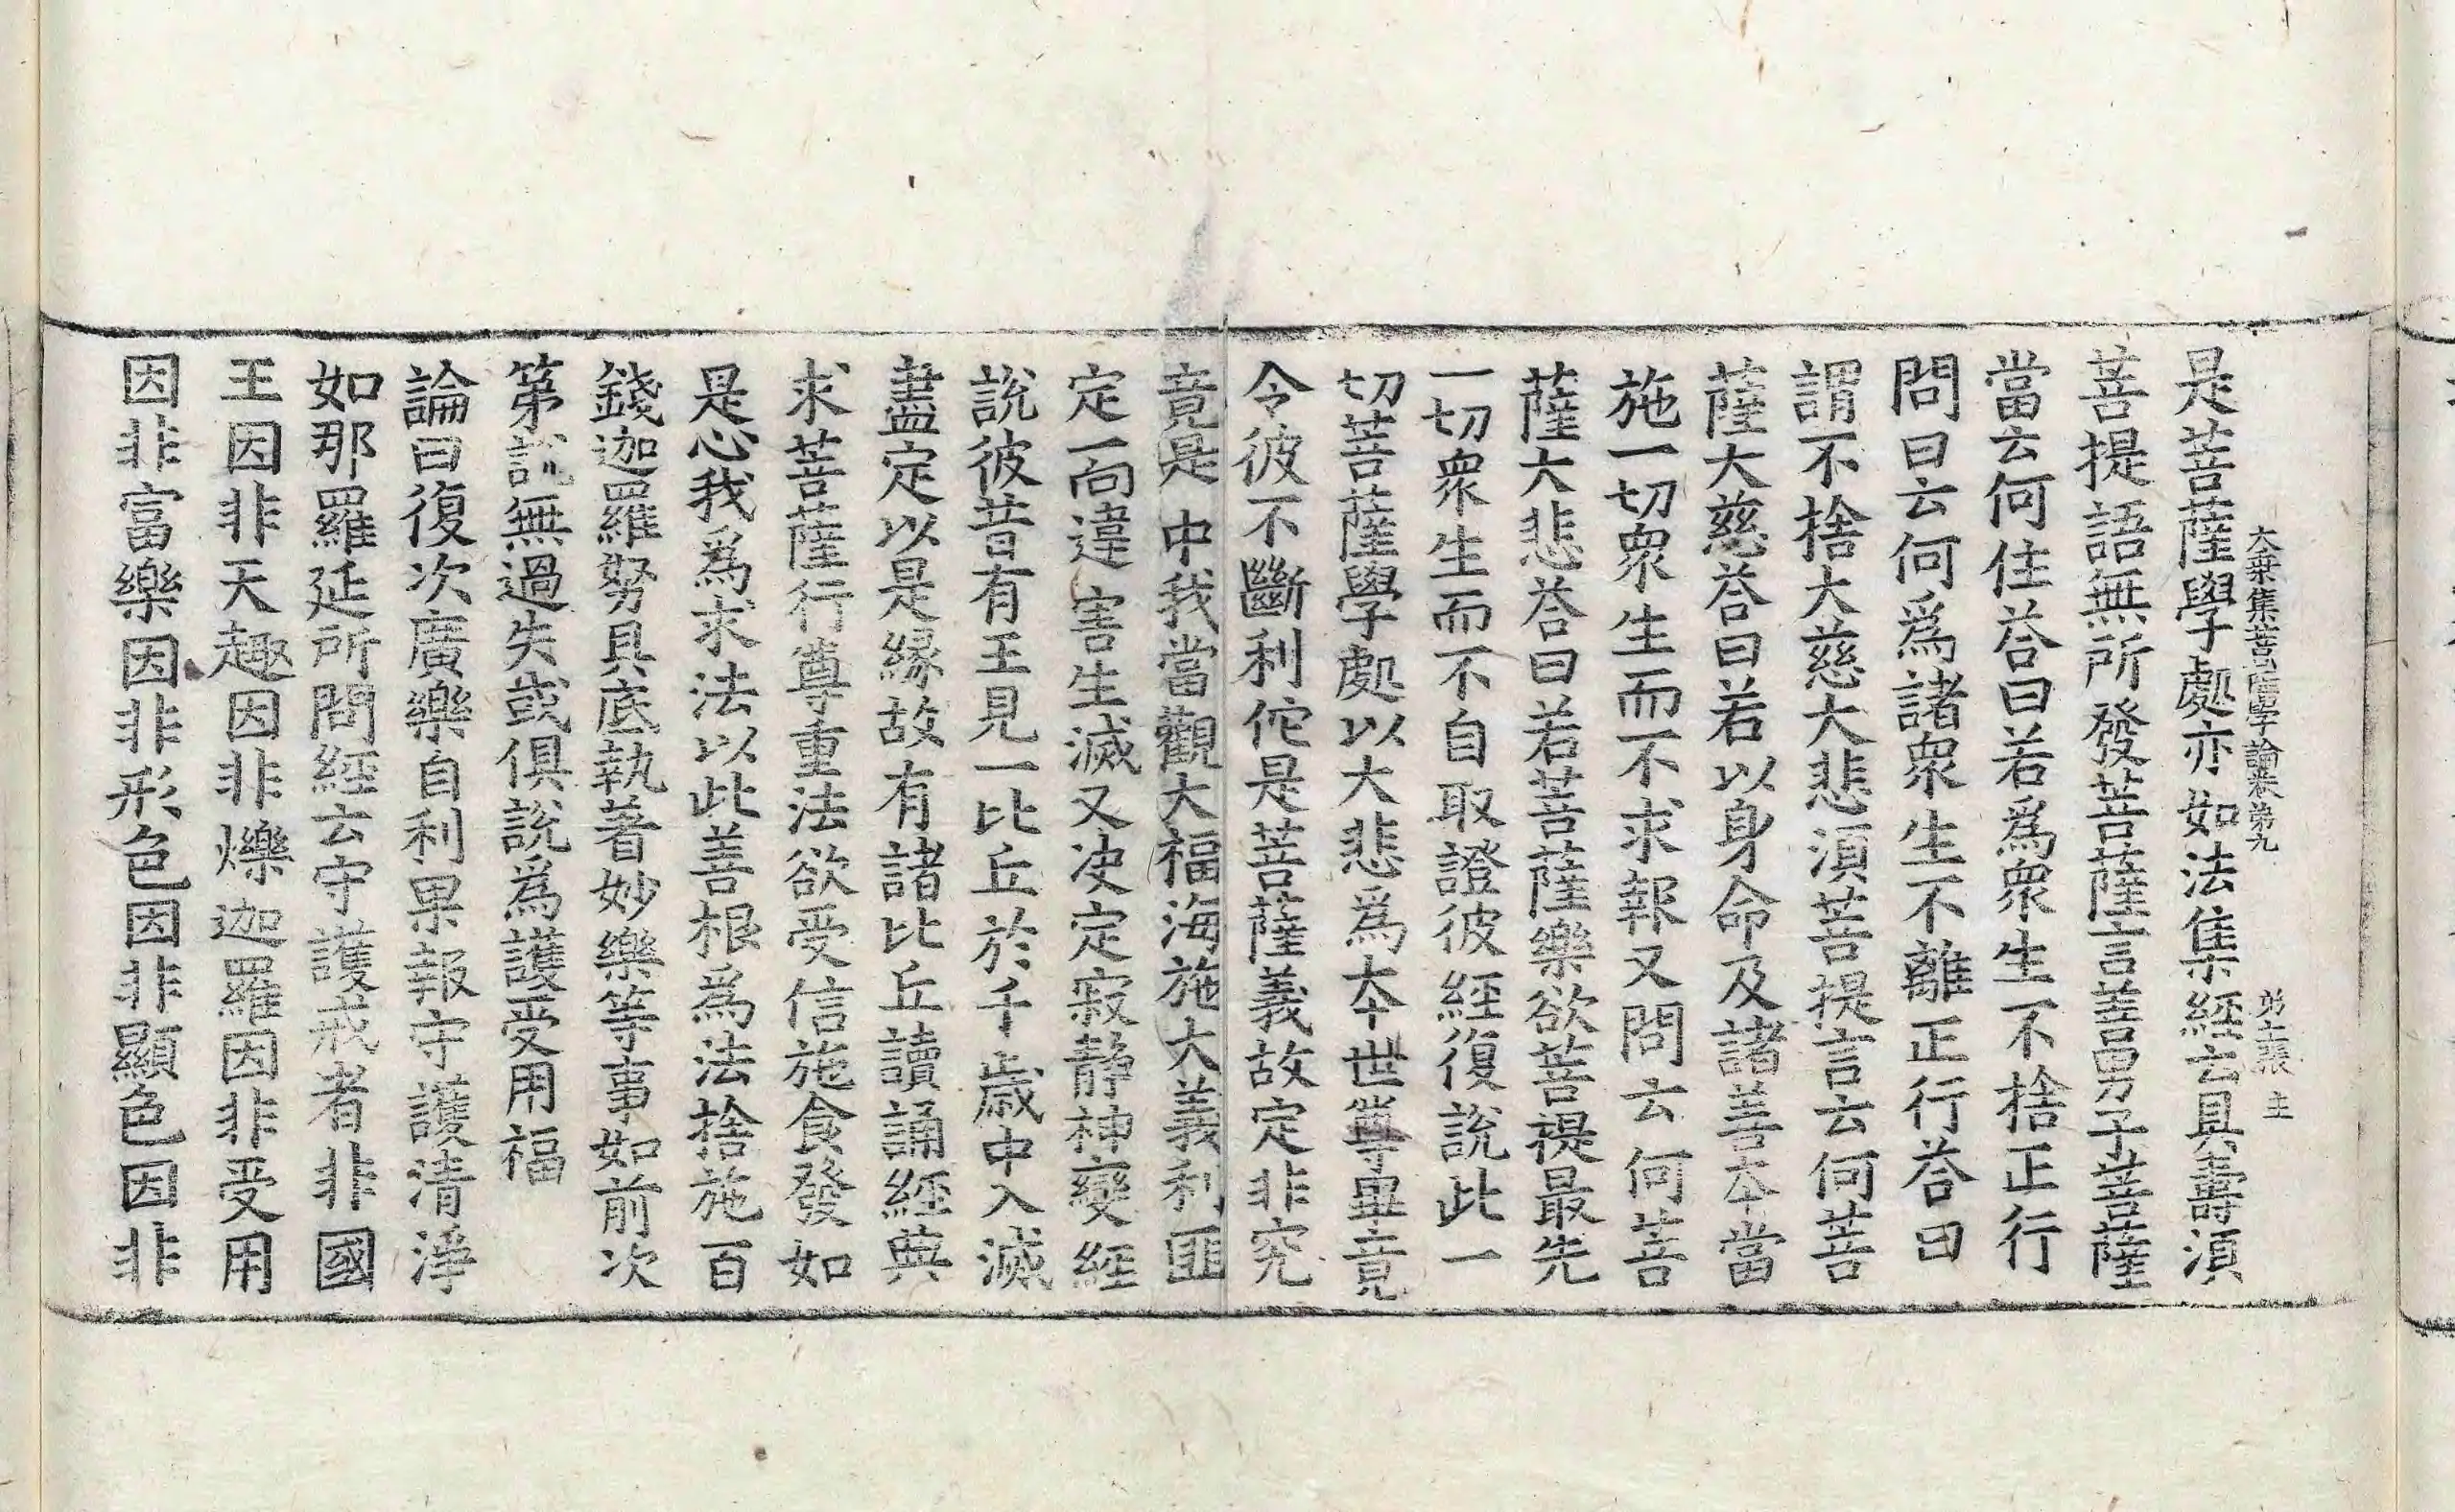 大乗集菩薩學論卷第九 第十二張 主
是菩薩學處亦如法集經云具壽湏
菩提語無所發菩薩言善男子菩薩
當云何住荅曰若爲衆生不捨正行
問曰云何爲諸衆生不離正行荅曰
謂不捨大慈大悲湏菩提言云何菩
薩大慈荅曰若以身命及諸善本當
施一切衆生而不求報又問云何菩
薩大悲荅曰若菩薩樂欲菩提最先
一切衆生而不自取證彼經復說此一
切菩薩學處以大悲爲本世尊畢竟
令彼不斷利佗是菩薩義故定非究
竟是中我當觀大福海施大義利匪
定一向違害生滅又决定寂靜神變經
說彼昔有王見一比丘於千歲中入滅
盡定以是縁故有諸比丘讀誦經典
求菩薩行尊重法欲受信施食發如
是心我爲求法以此善根爲法捨施百
錢迦羅努具底執著妙樂等事如前次
第說無過失或俱說爲護受用福
論曰復次廣樂自利果報守護清淨
如那羅延所問經云守護戒者非國
王因非天趣因非爍迦羅因非受用
因非富樂因非形色因非顯色因非